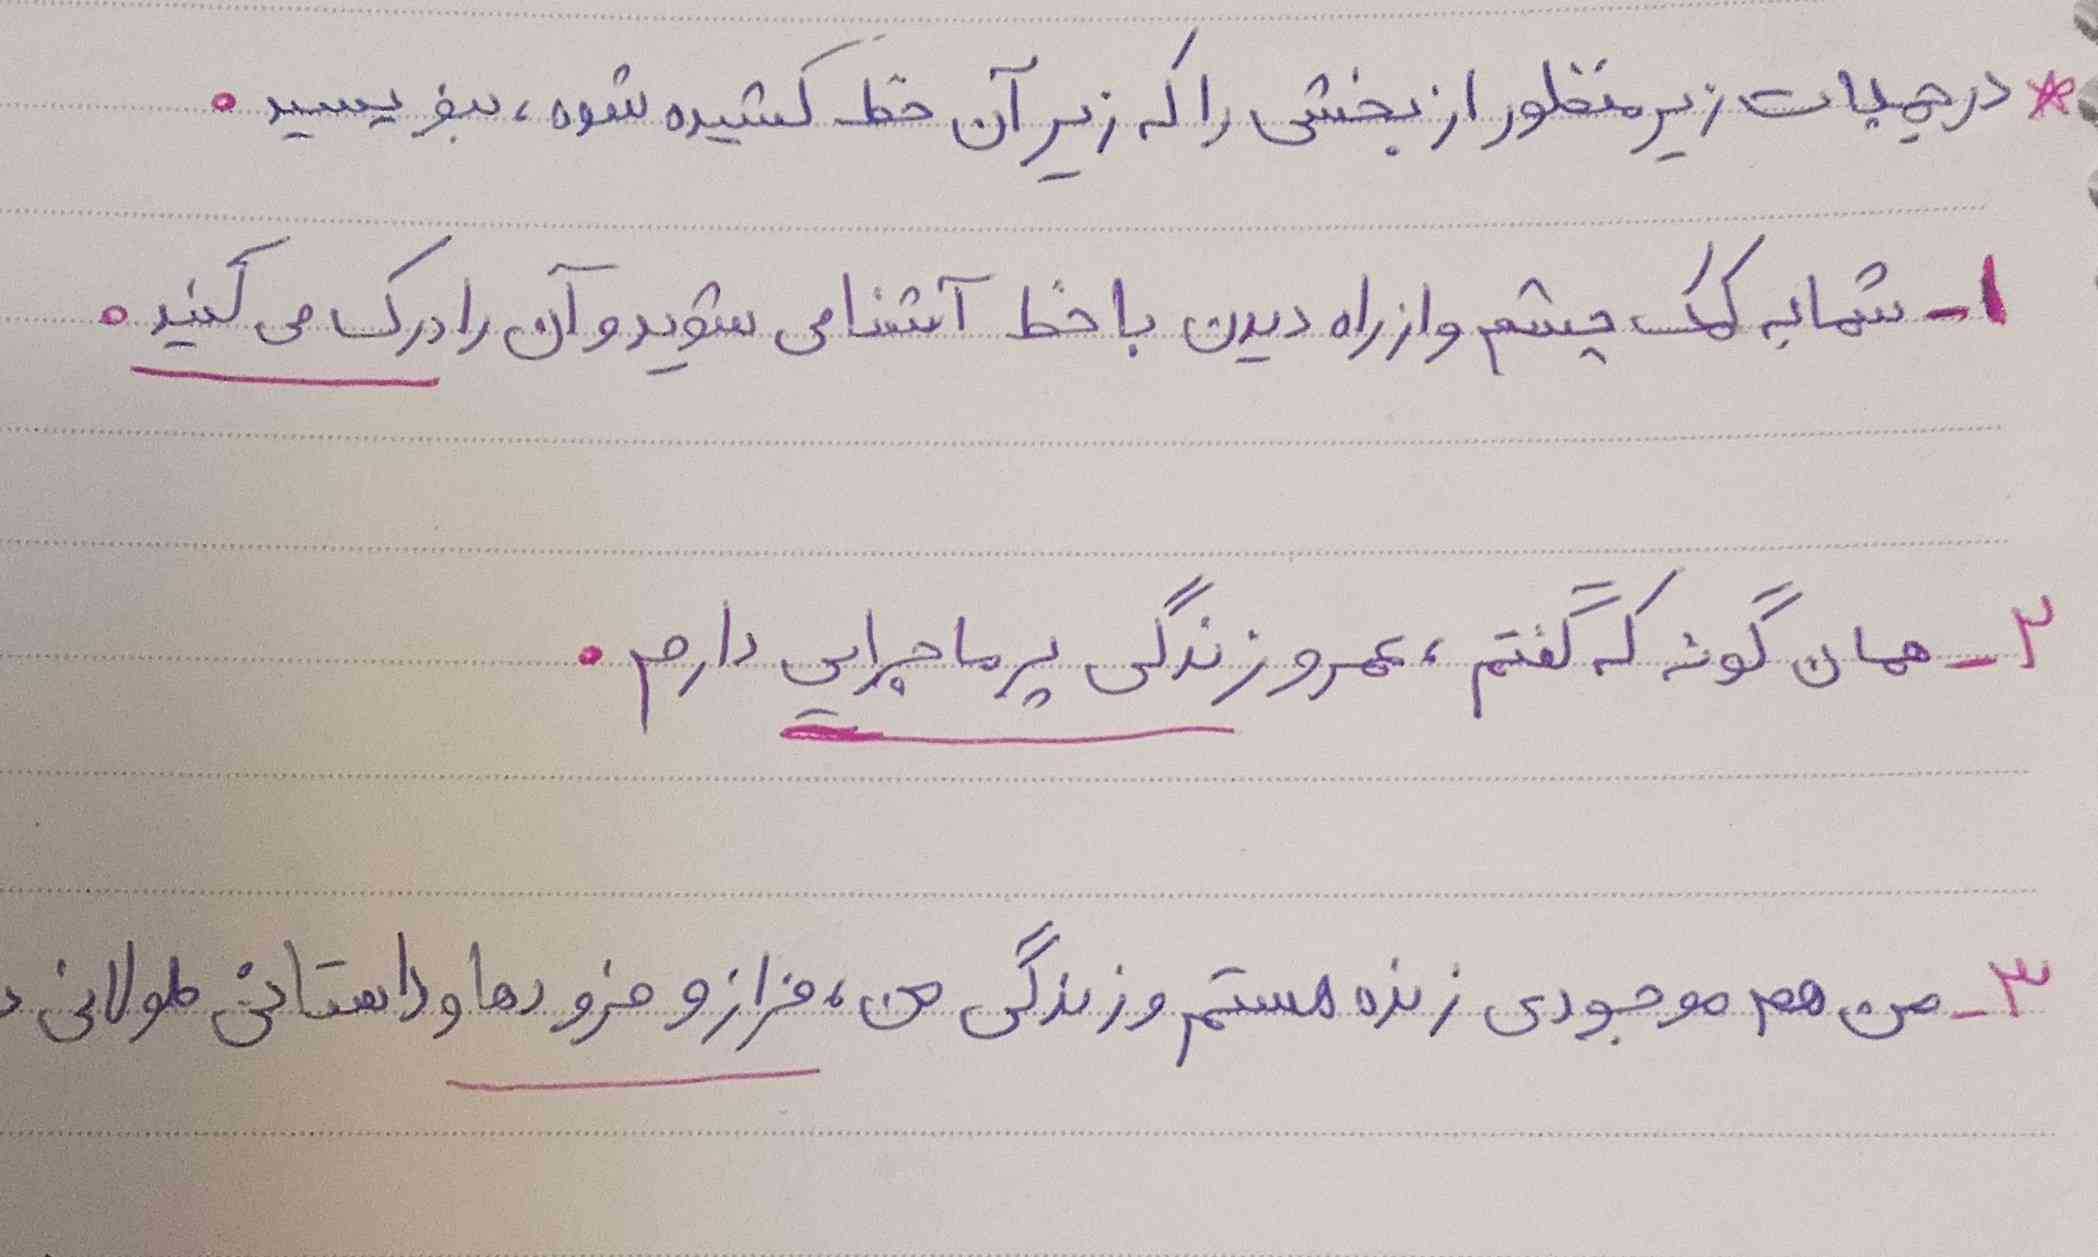 * در جملات زیر منظور از بخشی را که زیر آن خط کشیده شده، بنویسید.
۱- شما به کمک چشم و از راه دیدن با خط آشنا می شوید و آن را درک می کنید.
۲- همان گونه که گفتم، عمر و زندگی پر ماجرایی دارم.
۳- من هم موجودی زنده هستم و زندگی من، فراز و فرودها و داستانی طولانی د